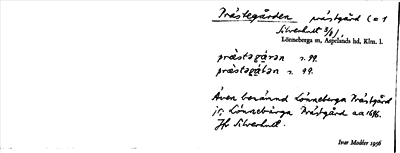 Prästegården prästgård (=1
Silverhult 3/8)
Lönneberga sn, Aspelands hd, Klm. l.
præstagáran r. 99.
præstagátan r. 99.
Även benämnd Lönneberga Prästgård
Lönneberga Prästgård aa 1696.
Jfr Silverhult.
Ivar Modéer 1936